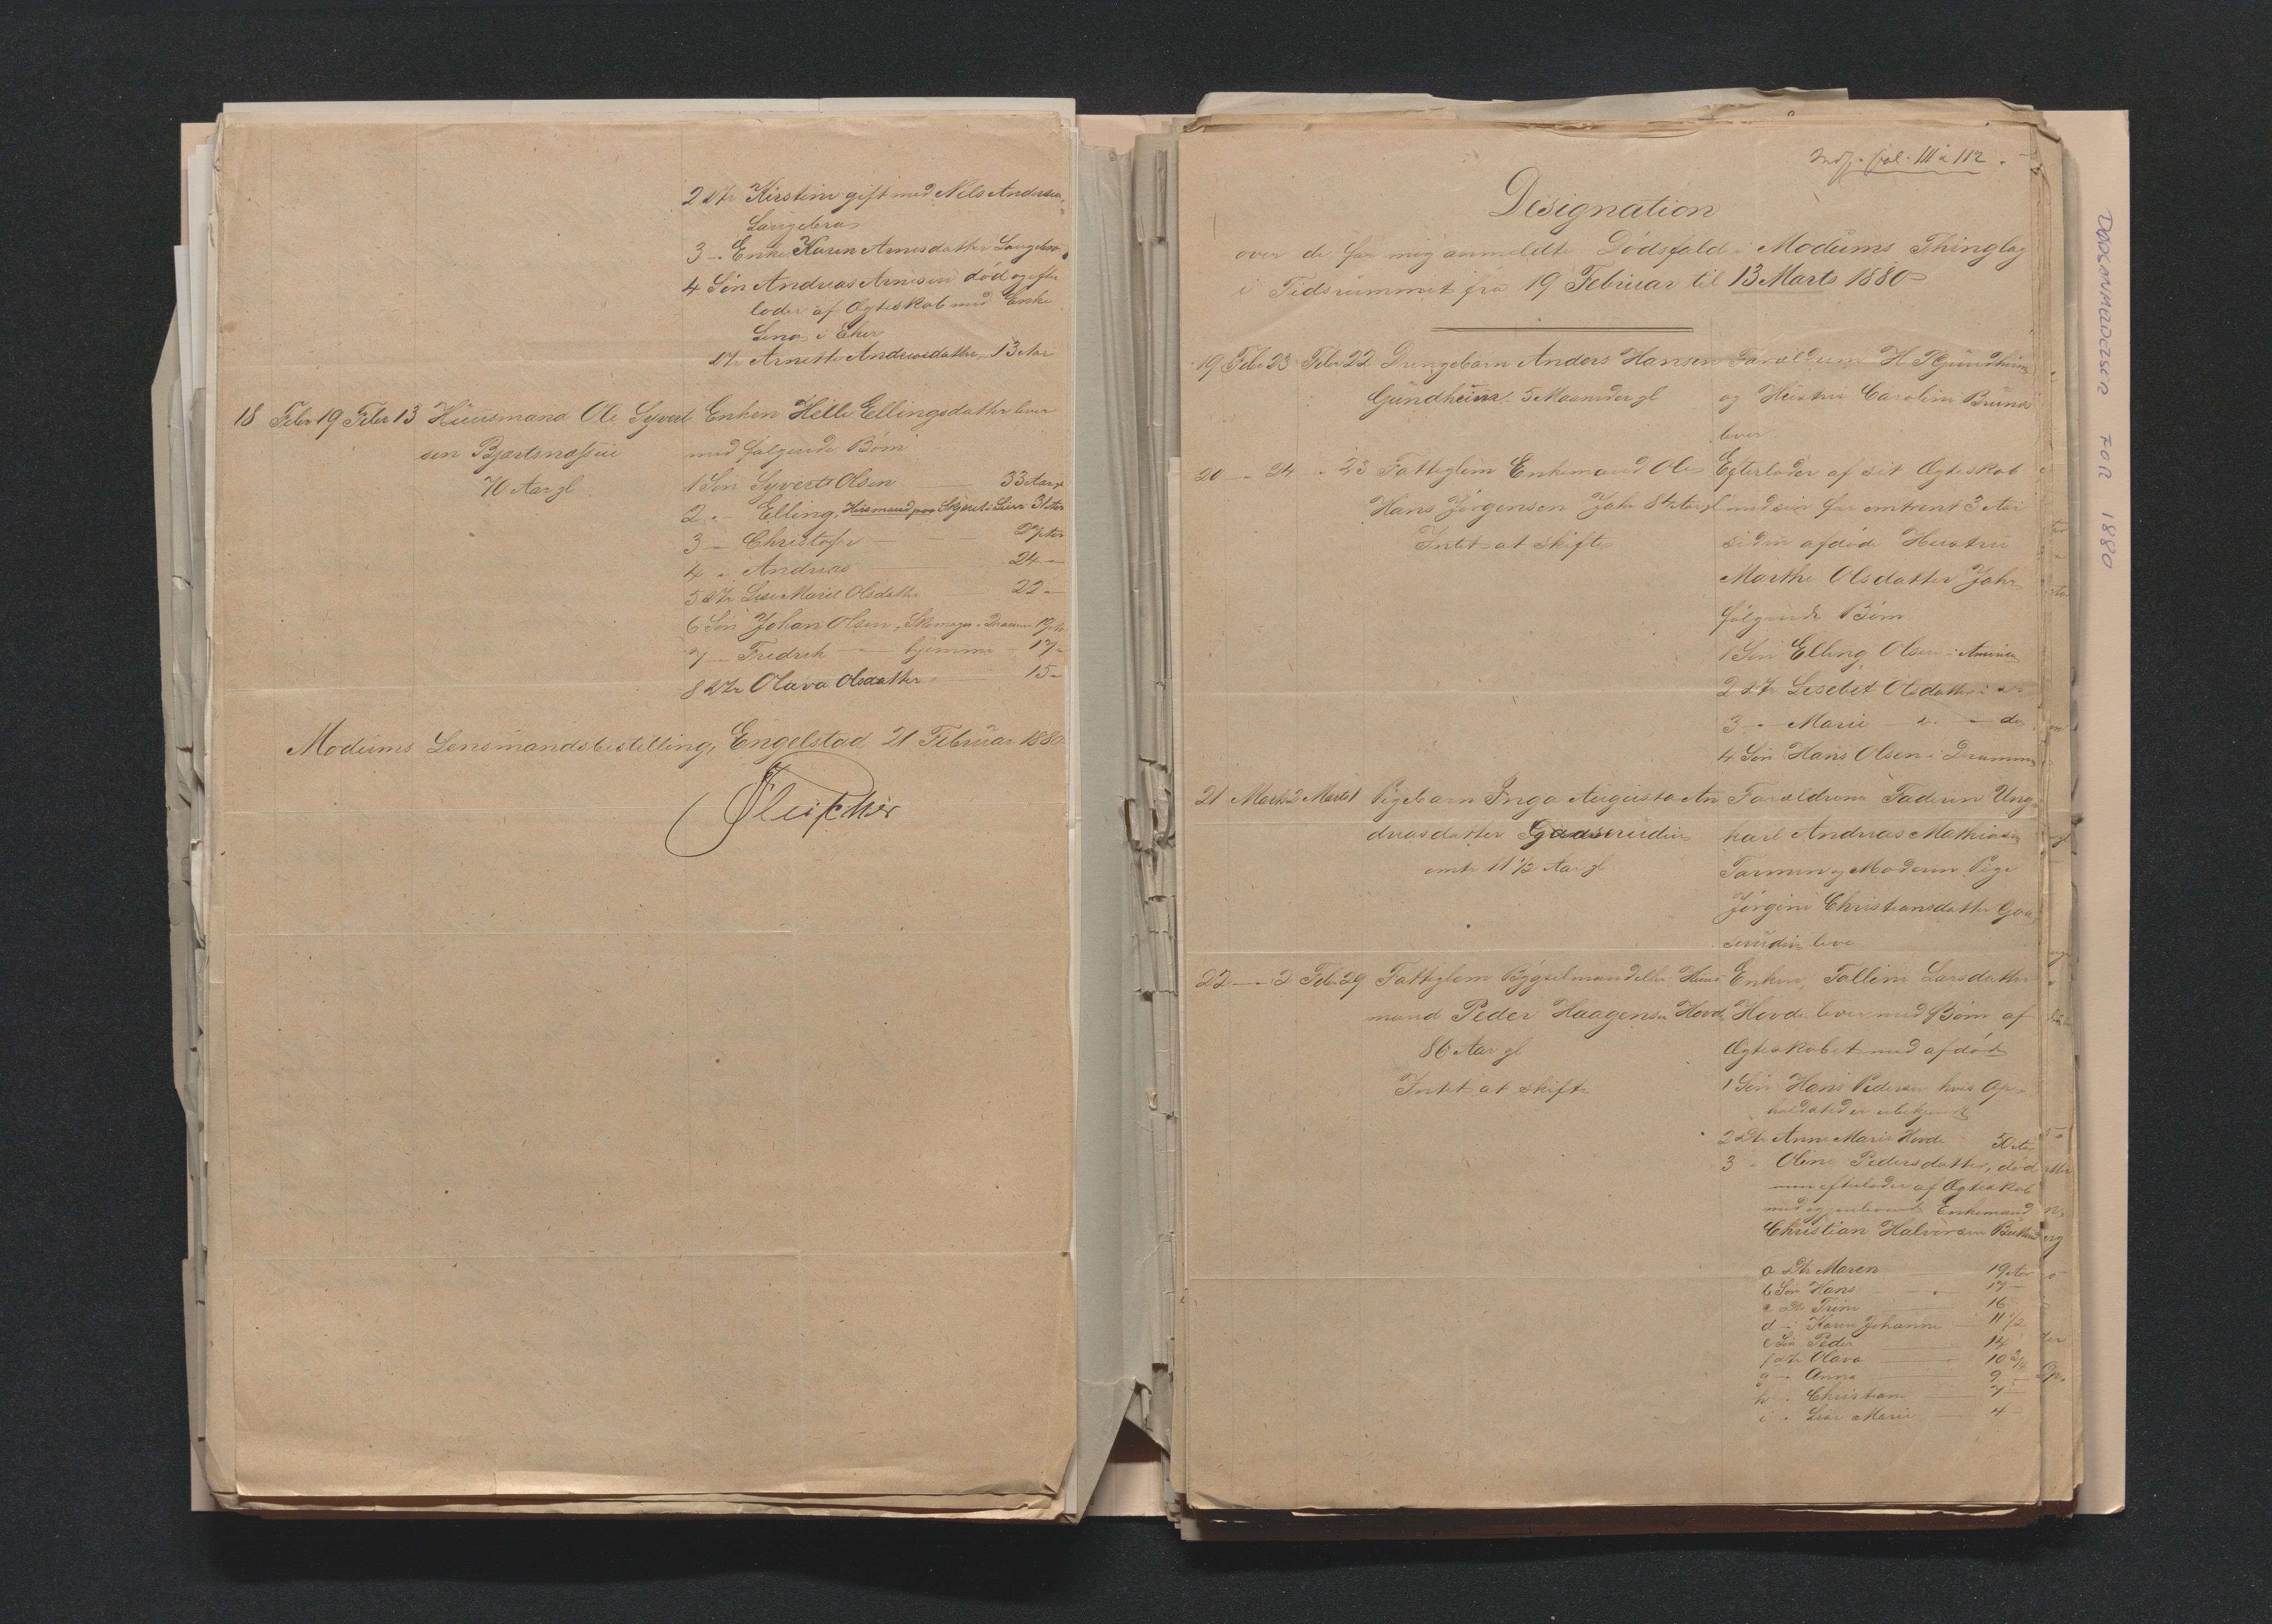 2 Dtr Kirstine gift med Nils Andersen
Langeteras
3 - Enke Karen Arnesdatter
4 Søn Andreas Arnesen død og efter
lader af Ægteskab med Enke
Lena i Eker
Dtr Arnette Andreasdatter, 13 Aar
18 Febr 19 Febr 13 Huusmand Ole Syvert Enken Helle Ellingsdatter lever
sen med følgende Børn
70 Aar gl
1 Søn Syvert Olsen 33 Aar gl
2 - Elling, Huusmand paa i Lier 31 Aar
3 - Christofer 27 Aar
4 - Andreas 24 -
5 Dtr Lise Marie Olsdatter 22 -
6 Søn Johan Olsen, Skomager i Drammen 19 Aar
7 - Fredrik - hjemme - 17 -
8 Dtr Olava Olsdatter 15 -
Modums Lensmandsbestilling, Engelstad 21 Februar 1880
Fleischer
Indf. fol. 111 à 112.
Designation
over de for mig anmeldte Dødsfald i Modums Thinglag
i Tidsrummet fra 19 Februar til 13 Marts 1880
19 Febr 23 Febr 22 Drengebarn Anders Hansen Forældrene H
Gundheim 5 Maaneder gl og Hustru Caroline
lever
20 - 24 - 23 Fattiglem Enkemand Ole Efterlader af sit Ægteskab
Hans Jørgensen Jahr 84 Aar gl med sin for omtrent 3 Aar
Intet at skifte siden afdøde Hustru
Marthe Olsdatter Jahr
følgende Børn
1 Søn Elling Olsen i Amerika
2 Dtr Lisebet Olsdatter i do
3 - Marie - do
4 Søn Hans Olsen i Drammen
21 Marts 2 Marts 1 Pigebarn Inga Augusta An Forældrene Faderen Ung
dreasdatter karl Andreas Mathiasen
omtr 11 1/2 Aar gl og Moderen Pige
Jørgine Christiansdatter Gaa
serudeie leve
22 - 2 Febr 29 Fattiglem Bygselmand eller Huus Enken Larsdatter
mand Peder Haagensen Hovde Hovde lever med Børn af
86 Aar gl Ægteskabet med afdøde
Intet at skifte 1 Søn Hans Pedersen hvis Op
holdsted er ubekjendt
2 Dtr Anne Marie Hovde 50 Aar
3 - Oline Pedersdatter, død
men efterlader af Ægteskab
med igjenlevende Enkemand
Christian Halvorsen
a Dtr Maren 19 Aar
b Søn Hans 17 -
c Dtr Trine 16
d - Karen Johanne 11 1/2
e Søn Peder 14
f Dtr Olava 10 3/4
g - Anna 9 -
h - Christiane 7 -
i - Lise Marie 4 -
DØDSANMELDELSER FOR 1880